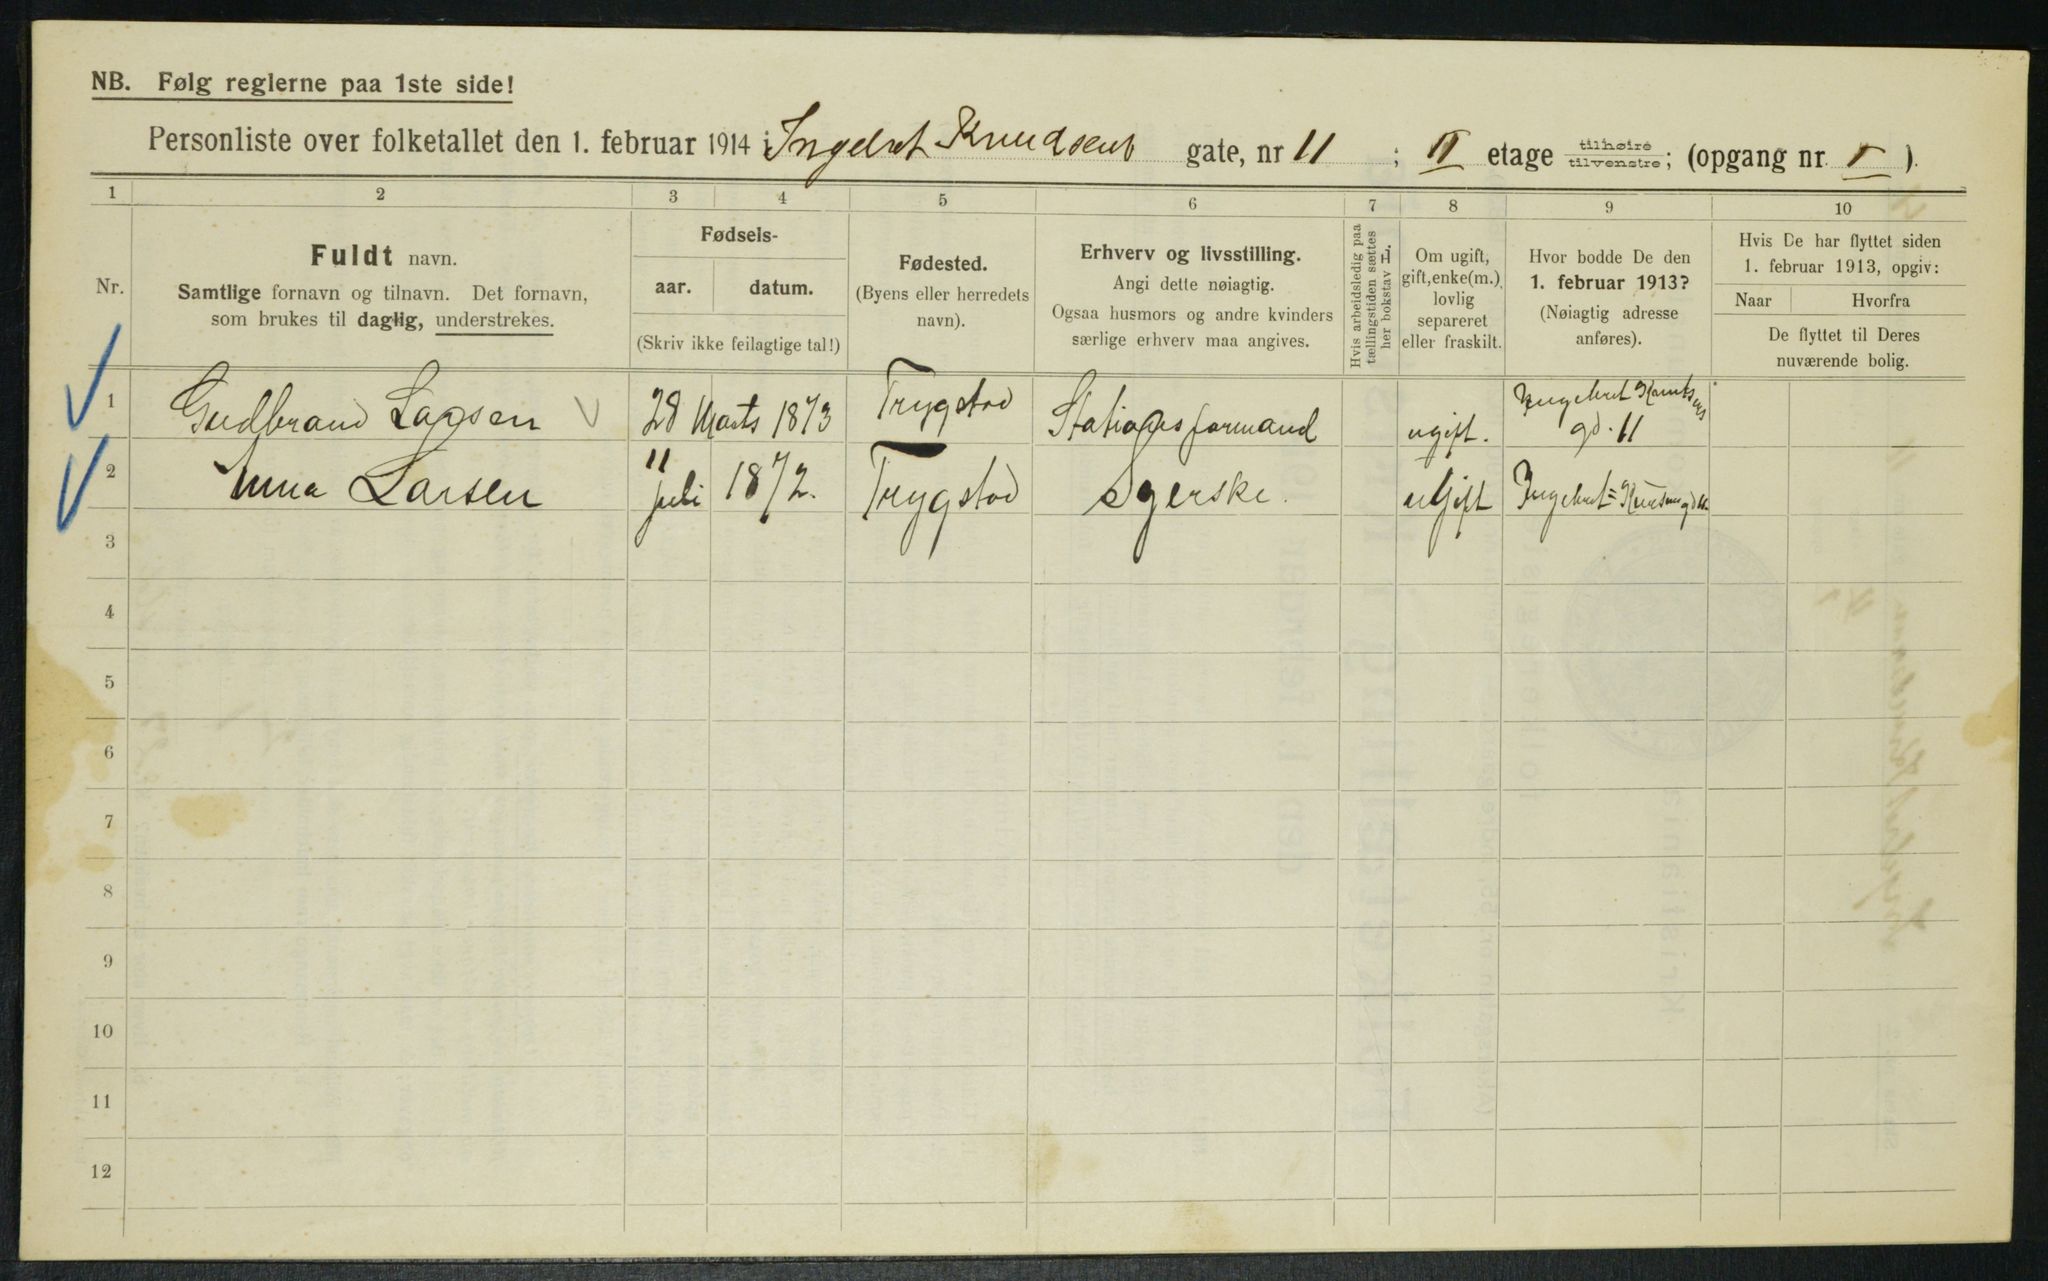 NB. Følg reglerne paa 1ste side!
Personliste over folketallet den 1. februar 1914 i Ingebret Knudsens gate, nr 11 ; II etage tilhøire tilvenstre; (opgang nr. I ).
1 2 3 4 5 6 7 8 9 10
Nr.
Fuldt navn.
Samtlige fornavn og tilnavn. Det fornavn,
som brukes til daglig, understrekes.
Fødsels-
aar. datum.
(Skriv ikke feilagtige tal!)
Fødested.
(Byens eller herredets
navn).
Erhverv og livsstilling.
Angi dette nøiagtig.
Ogsaa husmors og andre kvinders
særlige erhverv maa angives.
Hvis arbeidsledig paa
tællingstiden sættes
her bokstav L.
Om ugift,
gift, enke(m.),
lovlig
separeret
eller fraskilt.
Hvor bodde De den
1. februar 1913?
(Nøiagtig adresse
anføres).
Hvis De har flyttet siden
1. februar 1913, opgiv:
Naar Hvorfra
De flyttet til Deres
nuværende bolig.
1 Gudbrand Larsen 28 Marts 1873 Trygstad Stationsformand ugift. Ingebret Knutsens gd. 11
2 Anna Larsen 11 juli 1872. Trygstad Syerske. ugift Ingebret=
3
4
5
6
7
8
9
10
11
12